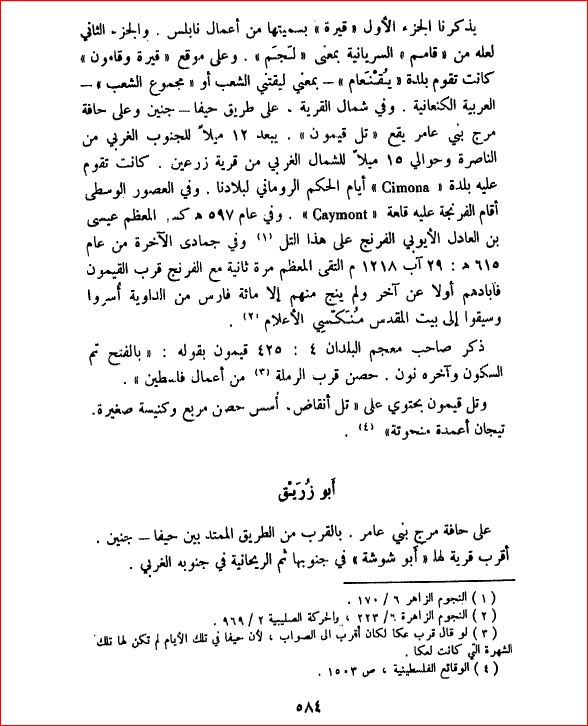 يذكرنا الجزء الأول « قيرة » بسميتها من أعمال نابلس . والجزء الثاني
لعله من « قامم » السريانية بمعنى « لَحَم » . وعلى موقع « قيرة وقامون »
كانت تقوم بلدة « يُقنْعام » – بمعني ليقتني الشعب أو « مجموع الشعب » –
العربية الكنعانية . وفي شمال القرية . على طريق حيفا – جنين وعلى حافة
مرج بني عامر يقع « تل قيمون » . يبعد ١٢ ميلاً للجنوب الغربي من
الناصرة وحوالي ١٥ ميلاً للشمال الغربي من قرية زرعين . كانت تقوم
عليه بلدة « Cimona » أيام الحكم الروماني لبلادنا . وفي العصور الوسطى
أقام الفرنجة عليه قلعة « Caymont » . وفي عام ٥٩٧ ه كسر المعظم عيسى
بن العادل الأيوبي الفرنج على هذا التل (١) وفي جمادى الآخرة من عام
٦١٥ ه : ٢٩ آب ١٢١٨ م التقى المعظم مرة ثانية مع الفرنج قرب القيمون
فابادهم أولا عن آخر ولم ينج منهم إلا مائة فارس من الداوية أُسروا
وسيقوا إلى بيت المقدس مُنَكّسي الأعلام (٢) .
ذكر صاحب معجم البلدان ٤ : ٤٢٥ قيمون بقوله : « بالفتح ثم
السكون وآخره نون . حصن قرب الرملة (٣) من أعمال فلسطين » .
وتل قيمون يحتوي على « تل أنقاض. أسس حصن مربع وكنيسة صغيرة.
تيجان أعمدة منحوتة» (٤) .
أبو زُرَيْق
على حافة مرج بني عامر . بالقرب من الطريق الممتد بين حيفا – جنين .
أقرب قرية لها « أبو شوشة » في جنوبها ثم الريحانية في جنوبه الغربي .
( ١ ) النجوم الزاهر ٦ / ١٧٠ .
( ٢ ) النجوم الزاهرة ٦ / ٢٢٣ ، والحركة الصليبية ٢ / ٩٦٩ .
( ٣ ) لو قال قرب عكا لكان أقرب الى الصواب ، لأن حيفا في تلك الأيام لم تكن لها تلك
الشهرة التي كانت لعكا .
( ٤ ) الوقائع الفلسطينية ، ص ١٥٠٣ .
٥٨٤